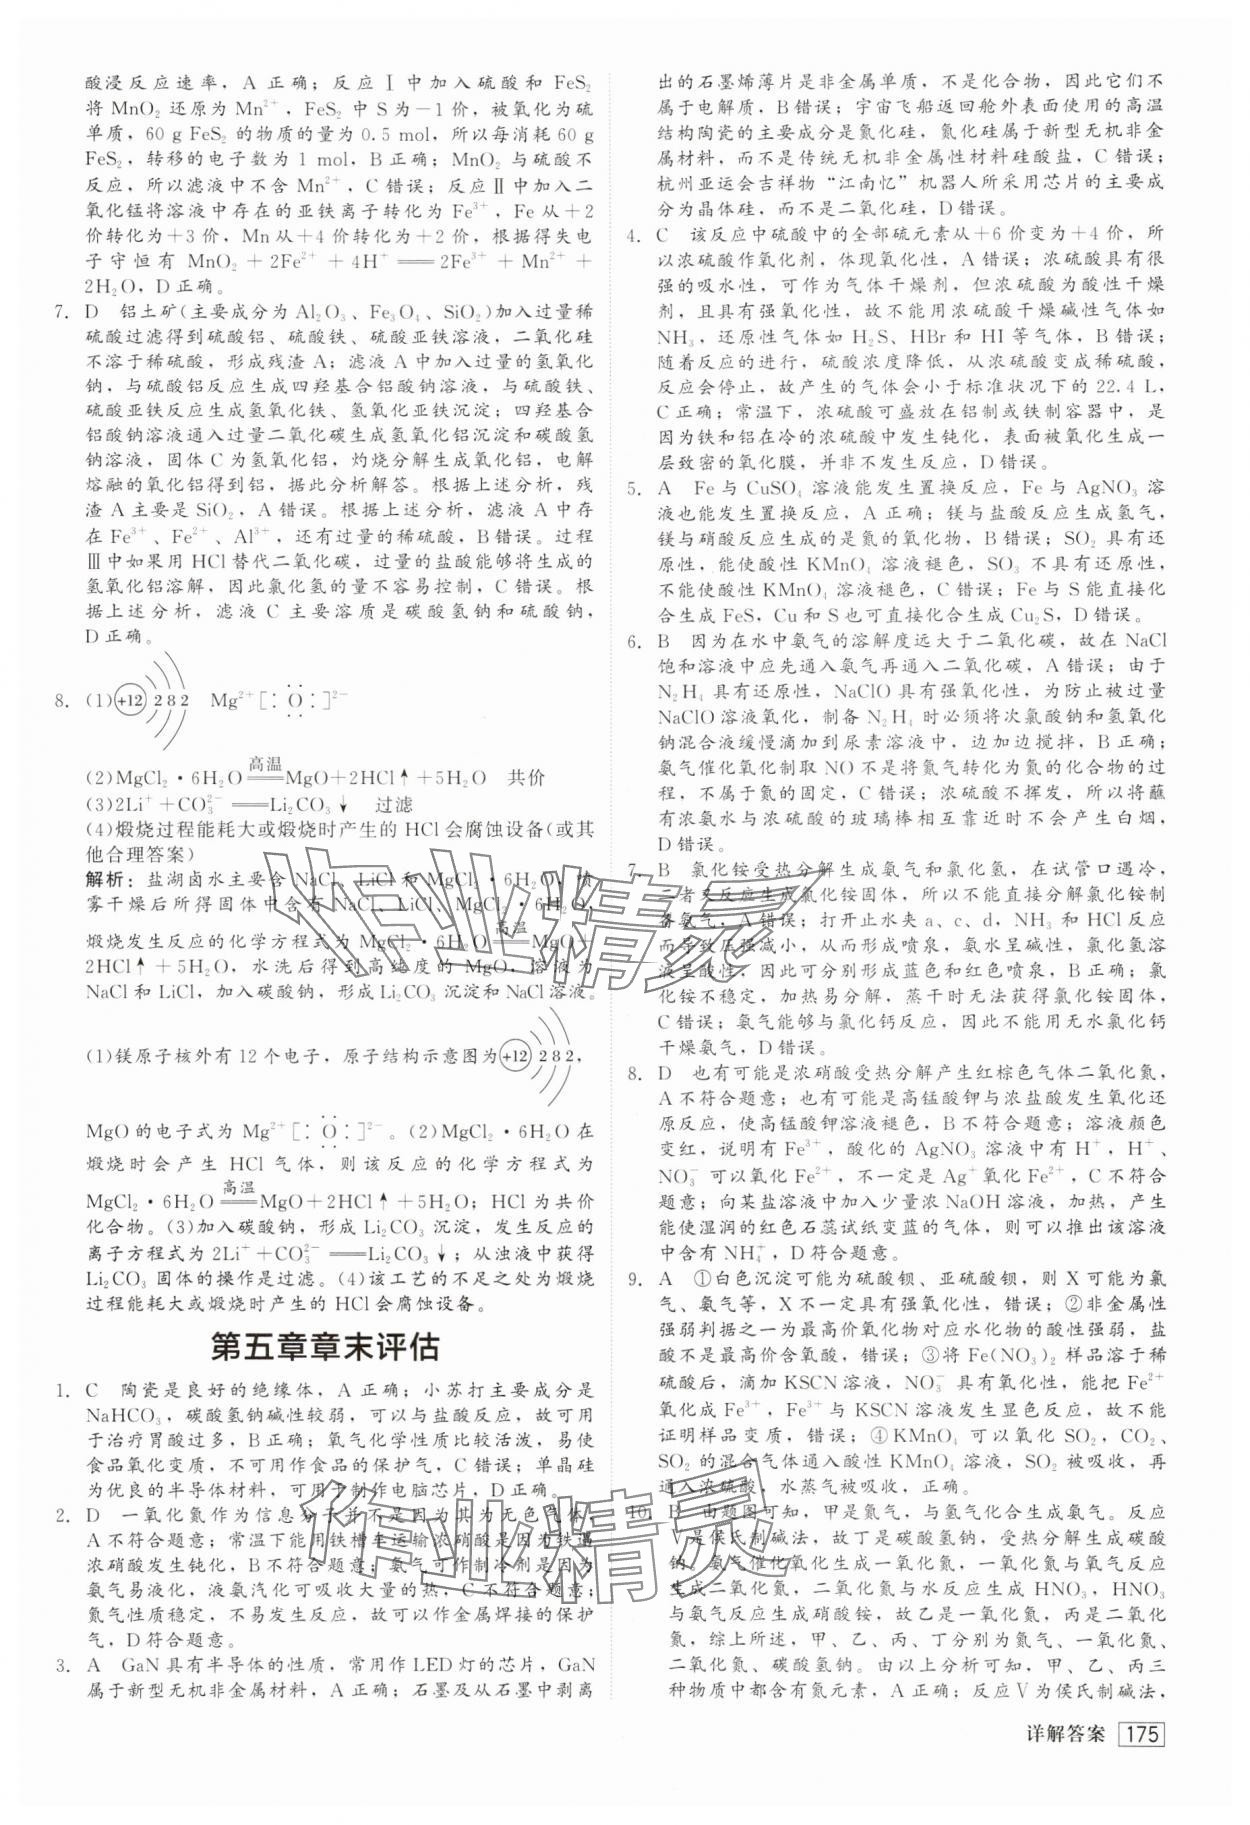 酸浸反应速率，A正确；反应Ⅰ中加入硫酸和FeS₂
将MnO₂还原为Mn²⁺，FeS₂中S为－1价，被氧化为硫
单质，60 g FeS₂的物质的量为0.5 mol，所以每消耗60 g
FeS₂，转移的电子数为1 mol，B正确；MnO₂与硫酸不
反应，所以滤液中不含Mn²⁺，C错误；反应Ⅱ中加入二
氧化锰将溶液中存在的亚铁离子转化为Fe³⁺，Fe从＋2
价转化为＋3价，Mn从＋4价转化为＋2价，根据得失电
子守恒有MnO₂＋2Fe²⁺＋4H⁺══2Fe³⁺＋Mn²⁺＋
2H₂O，D正确。
7. D 铝土矿(主要成分为Al₂O₃、Fe₃O₄、SiO₂)加入过量稀
硫酸过滤得到硫酸铝、硫酸铁、硫酸亚铁溶液，二氧化硅
不溶于稀硫酸，形成残渣A；滤液A中加入过量的氢氧化
钠，与硫酸铝反应生成四羟基合铝酸钠溶液，与硫酸铁、
硫酸亚铁反应生成氢氧化铁、氢氧化亚铁沉淀；四羟基合
铝酸钠溶液通入过量二氧化碳生成氢氧化铝沉淀和碳酸氢
钠溶液，固体C为氢氧化铝，灼烧分解生成氧化铝，电解
熔融的氧化铝得到铝，据此分析解答。根据上述分析，残
渣A主要是SiO₂，A错误。根据上述分析，滤液A中存
在Fe³⁺、Fe²⁺、Al³⁺，还有过量的稀硫酸，B错误。过程
Ⅲ中如果用HCl替代二氧化碳，过量的盐酸能够将生成的
氢氧化铝溶解，因此氯化氢的量不容易控制，C错误。根
据上述分析，滤液C主要溶质是碳酸氢钠和硫酸钠，
D正确。
8. (1)+12 2 8 2 Mg²⁺[:Ö:]²⁻
(2)MgCl₂·6H₂O═高温═MgO＋2HCl↑＋5H₂O 共价
(3)2Li⁺＋CO₃²⁻══Li₂CO₃↓ 过滤
(4)煅烧过程能耗大或煅烧时产生的HCl会腐蚀设备(或其
他合理答案)
解析：盐湖卤水主要含NaCl、LiCl和MgCl₂·6H₂O，喷
雾干燥后所得固体中含有NaCl、LiCl、MgCl₂·6H₂O，
煅烧发生反应的化学方程式为MgCl₂·6H₂O═高温═MgO＋
2HCl↑＋5H₂O，水洗后得到高纯度的MgO，溶液为
NaCl和LiCl，加入碳酸钠，形成Li₂CO₃沉淀和NaCl溶液。
(1)镁原子核外有12个电子，原子结构示意图为+12 2 8 2，
MgO的电子式为Mg²⁺[:Ö:]²⁻。(2)MgCl₂·6H₂O在
煅烧时会产生HCl气体，则该反应的化学方程式为
MgCl₂·6H₂O═高温═MgO＋2HCl↑＋5H₂O；HCl为共价
化合物。(3)加入碳酸钠，形成Li₂CO₃沉淀，发生反应的
离子方程式为2Li⁺＋CO₃²⁻══Li₂CO₃↓；从浊液中获得
Li₂CO₃固体的操作是过滤。(4)该工艺的不足之处为煅烧
过程能耗大或煅烧时产生的HCl会腐蚀设备。
第五章章末评估
1. C 陶瓷是良好的绝缘体，A正确；小苏打主要成分是
NaHCO₃，碳酸氢钠碱性较弱，可以与盐酸反应，故可用
于治疗胃酸过多，B正确；氧气化学性质比较活泼，易使
食品氧化变质，不可用作食品的保护气，C错误；单晶硅
为优良的半导体材料，可用于制作电脑芯片，D正确。
2. D 一氧化氮作为信息分子并不是因为其为无色气体，
A不符合题意；常温下能用铁槽车运输浓硝酸是因为铁遇
浓硝酸发生钝化，B不符合题意；氨气可作制冷剂是因为
氨气易液化，液氨汽化可吸收大量的热，C不符合题意；
氮气性质稳定，不易发生反应，故可以作金属焊接的保护
气，D符合题意。
3. A GaN具有半导体的性质，常用作LED灯的芯片，GaN
属于新型无机非金属材料，A正确；石墨及从石墨中剥离
出的石墨烯薄片是非金属单质，不是化合物，因此它们不
属于电解质，B错误；宇宙飞船返回舱外表面使用的高温
结构陶瓷的主要成分是氮化硅，氮化硅属于新型无机非金
属材料，而不是传统无机非金属性材料硅酸盐，C错误；
杭州亚运会吉祥物“江南忆”机器人所采用芯片的主要成
分为晶体硅，而不是二氧化硅，D错误。
4. C 该反应中硫酸中的全部硫元素从＋6价变为＋4价，所
以浓硫酸作氧化剂，体现氧化性，A错误；浓硫酸具有很
强的吸水性，可作为气体干燥剂，但浓硫酸为酸性干燥
剂，且具有强氧化性，故不能用浓硫酸干燥碱性气体如
NH₃，还原性气体如H₂S、HBr和HI等气体，B错误；
随着反应的进行，硫酸浓度降低，从浓硫酸变成稀硫酸，
反应会停止，故产生的气体会小于标准状况下的22.4 L，
C正确；常温下，浓硫酸可盛放在铝制或铁制容器中，是
因为铁和铝在冷的浓硫酸中发生钝化，表面被氧化生成一
层致密的氧化膜，并非不发生反应，D错误。
5. A Fe与CuSO₄溶液能发生置换反应，Fe与AgNO₃溶
液也能发生置换反应，A正确；镁与盐酸反应生成氢气，
镁与硝酸反应生成的是氮的氧化物，B错误；SO₂具有还
原性，能使酸性KMnO₄溶液褪色，SO₃不具有还原性，
不能使酸性KMnO₄溶液褪色，C错误；Fe与S能直接化
合生成FeS，Cu和S也可直接化合生成Cu₂S，D错误。
6. B 因为在水中氨气的溶解度远大于二氧化碳，故在NaCl
饱和溶液中应先通入氨气再通入二氧化碳，A错误；由于
N₂H₄具有还原性，NaClO具有强氧化性，为防止被过量
NaClO溶液氧化，制备N₂H₄时必须将次氯酸钠和氢氧化
钠混合液缓慢滴加到尿素溶液中，边加边搅拌，B正确；
氨气催化氧化制取NO不是将氮气转化为氮的化合物的过
程，不属于氮的固定，C错误；浓硫酸不挥发，所以将蘸
有浓氨水与浓硫酸的玻璃棒相互靠近时不会产生白烟，
D错误。
7. B 氯化铵受热分解生成氨气和氯化氢，在试管口遇冷，
二者又反应生成氯化铵固体，所以不能直接分解氯化铵制
备氨气，A错误；打开止水夹a、c、d，NH₃和HCl反应
而导致压强减小，从而形成喷泉，氨水呈碱性，氯化氢溶
液呈酸性，因此可分别形成蓝色和红色喷泉，B正确；氯
化铵不稳定，加热易分解，蒸干时无法获得氯化铵固体，
C错误；氨气能够与氯化钙反应，因此不能用无水氯化钙
干燥氨气，D错误。
8. D 也有可能是浓硝酸受热分解产生红棕色气体二氧化氮，
A不符合题意；也有可能是高锰酸钾与浓盐酸发生氧化还
原反应，使高锰酸钾溶液褪色，B不符合题意；溶液颜色
变红，说明有Fe³⁺，酸化的AgNO₃溶液中有H⁺，H⁺、
NO₃⁻可以氧化Fe²⁺，不一定是Ag⁺氧化Fe²⁺，C不符合
题意；向某盐溶液中加入少量浓NaOH溶液，加热，产生
能使湿润的红色石蕊试纸变蓝的气体，则可以推出该溶液
中含有NH₄⁺，D符合题意。
9. A ①白色沉淀可能为硫酸钡、亚硫酸钡，则X可能为氯
气、氨气等，X不一定具有强氧化性，错误；②非金属性
强弱判据之一为最高价氧化物对应水化物的酸性强弱，盐
酸不是最高价含氧酸，错误；③将Fe(NO₃)₂样品溶于稀
硫酸后，滴加KSCN溶液，NO₃⁻具有氧化性，能把Fe²⁺
氧化成Fe³⁺，Fe³⁺与KSCN溶液发生显色反应，故不能
证明样品变质，错误；④KMnO₄可以氧化SO₂，CO₂、
SO₂的混合气体通入酸性KMnO₄溶液，SO₂被吸收，再
通入浓硫酸，水蒸气被吸收，正确。
10. B 由题图可知，甲是氮气，与氢气化合生成氨气。反应
Ⅴ是侯氏制碱法，故丁是碳酸氢钠，受热分解生成碳酸
钠。氨气催化氧化生成一氧化氮，一氧化氮与氧气反应
生成二氧化氮，二氧化氮与水反应生成HNO₃，HNO₃
与氨气反应生成硝酸铵，故乙是一氧化氮，丙是二氧化
氮，综上所述，甲、乙、丙、丁分别为氮气、一氧化氮、
二氧化氮、碳酸氢钠。由以上分析可知，甲、乙、丙三
种物质中都含有氮元素，A正确；反应Ⅴ为侯氏制碱法，
详解答案 175
作业精灵
作业精灵